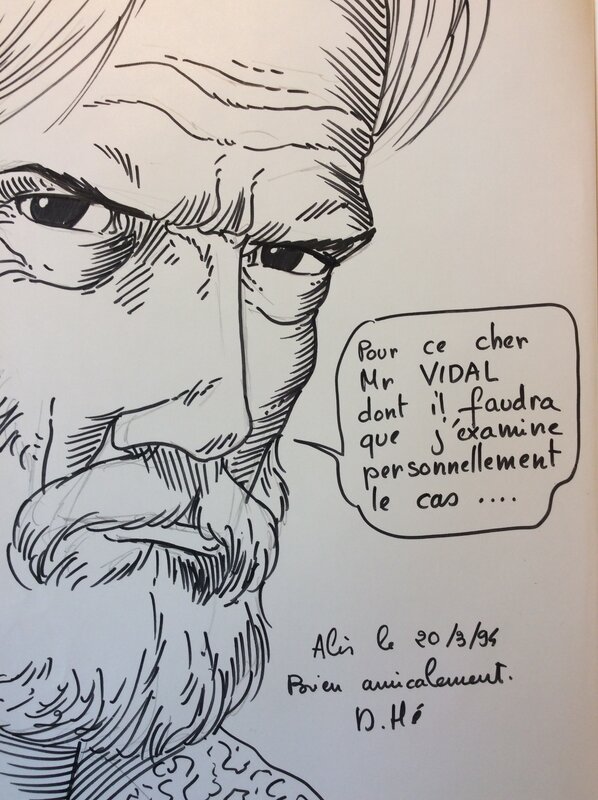 Pour ce cher
Mr VIDAL
dont il faudra
que j'examine
personnellement
le cas ....
le 20/3/94
amicalement.
D. Hé